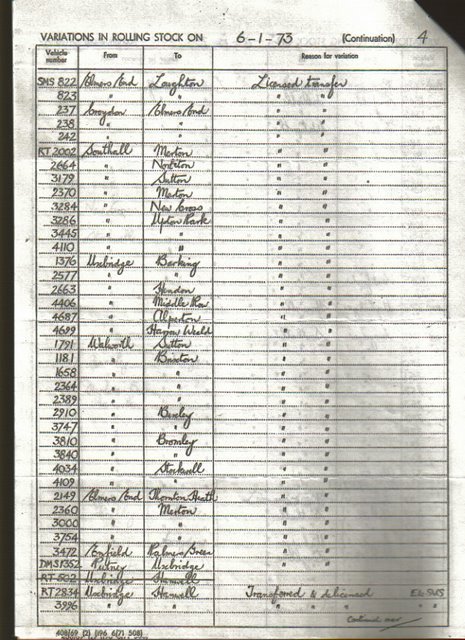 VARIATIONS IN ROLLING STOCK ON 6-1-73 (Continuation) 4
Vehicle number From To Reason for variation
SMS 822 Elmers End Loughton Licensed transfer
823 " " " "
237 Croydon Elmers End " "
238 " " " "
242 " " " "
RT 2002 Southall Merton " "
2664 " Norbiton " "
3179 " Sutton " "
2370 " Merton " "
3284 " New Cross " "
3286 " Upton Park " "
3445 " " " "
4110 " " " "
1376 Uxbridge Barking " "
2577 " " " "
2663 " Hendon " "
4406 " Middle Row " "
4687 " Alperton " "
4699 " Harrow Weald " "
1791 Walworth Sutton " "
1181 " Brixton " "
1658 " " " "
2364 " " " "
2389 " " " "
2910 " Bexley " "
3747 " " " "
3810 " Bromley " "
3840 " " " "
4034 " Stockwell " "
4109 " " " "
2149 Elmers End Thornton Heath " "
2360 " Merton " "
3000 " " " "
3754 " " " "
3472 Enfield Palmers Green " "
DMS 1352 Putney Uxbridge " "
RT 502 Uxbridge Hanwell " "
RT 2834 Uxbridge Hanwell Transferred & delicensed Ex SMS
3996 " " " " "
Continued over
408/69 (2) (196 6/71 508)